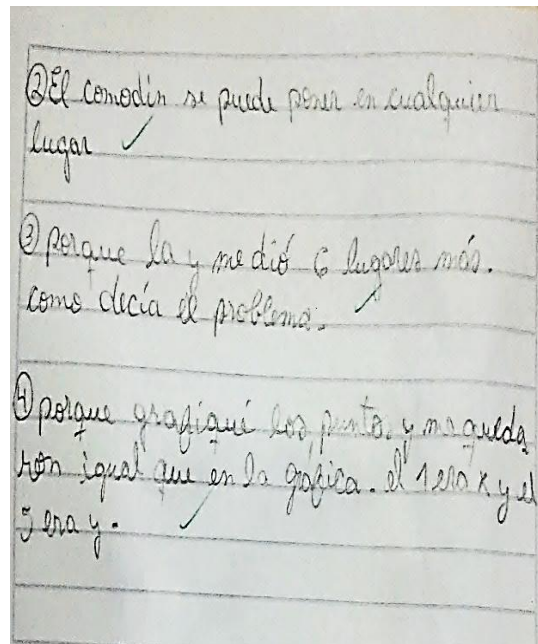 ② El comodín se puede poner en cualquier
lugar
③ porque la y me dió 6 lugares más.
como decía el problema.
④ porque grafiqué los punto. y me queda
ron igual que en la gráfica. el 1 era x y el
5 era y.